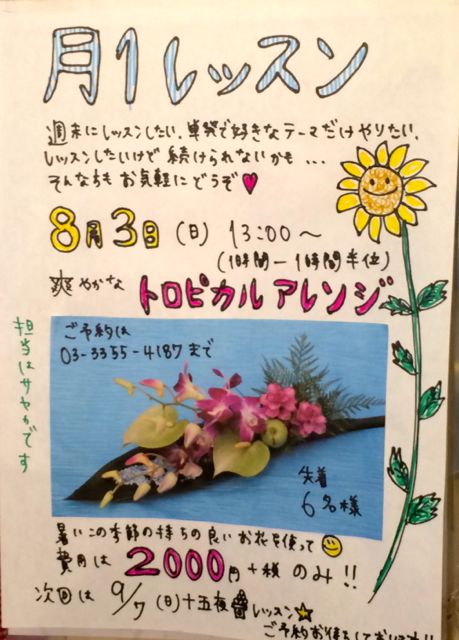 月1レッスン
週末にレッスンしたい、単発で好きなテーマだけやりたい、
レッスンしたいけど続けられないかも...
そんな方もお気軽にどうぞ♥
8月3日(日)13:00〜
(1時間ー1時間半位)
爽やかな トロピカルアレンジ
ご予約は
03-3355-4187まで
担当はサヤカです
先着
6名様
暑いこの季節の持ちの良いお花を使って
費用は2000円+税のみ!!
次回は9/7(日)十五夜レッスン☆
ご予約お待ちしております!!